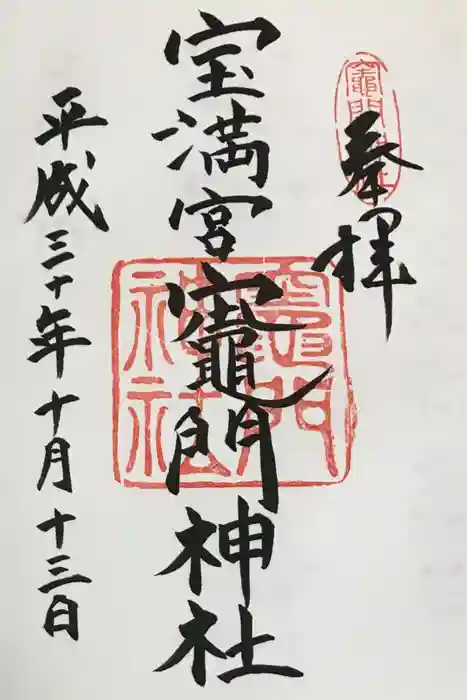 奉拝
宝満宮竈門神社
平成三十年十月十三日
竈門
神社